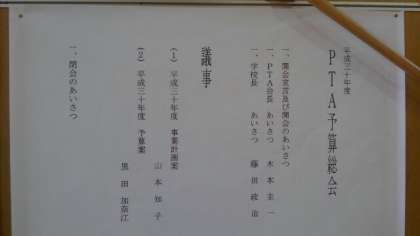 平成三十年度
PTA予算総会
一、開会宣言及び開会のあいさつ
一、PTA会長 あいさつ 木本 圭一
一、学校長 あいさつ 藤田 政治
議事
(1) 平成三十年度 事業計画案
山本 知子
(2) 平成三十年度 予算案
黒田 加奈江
一、閉会のあいさつ